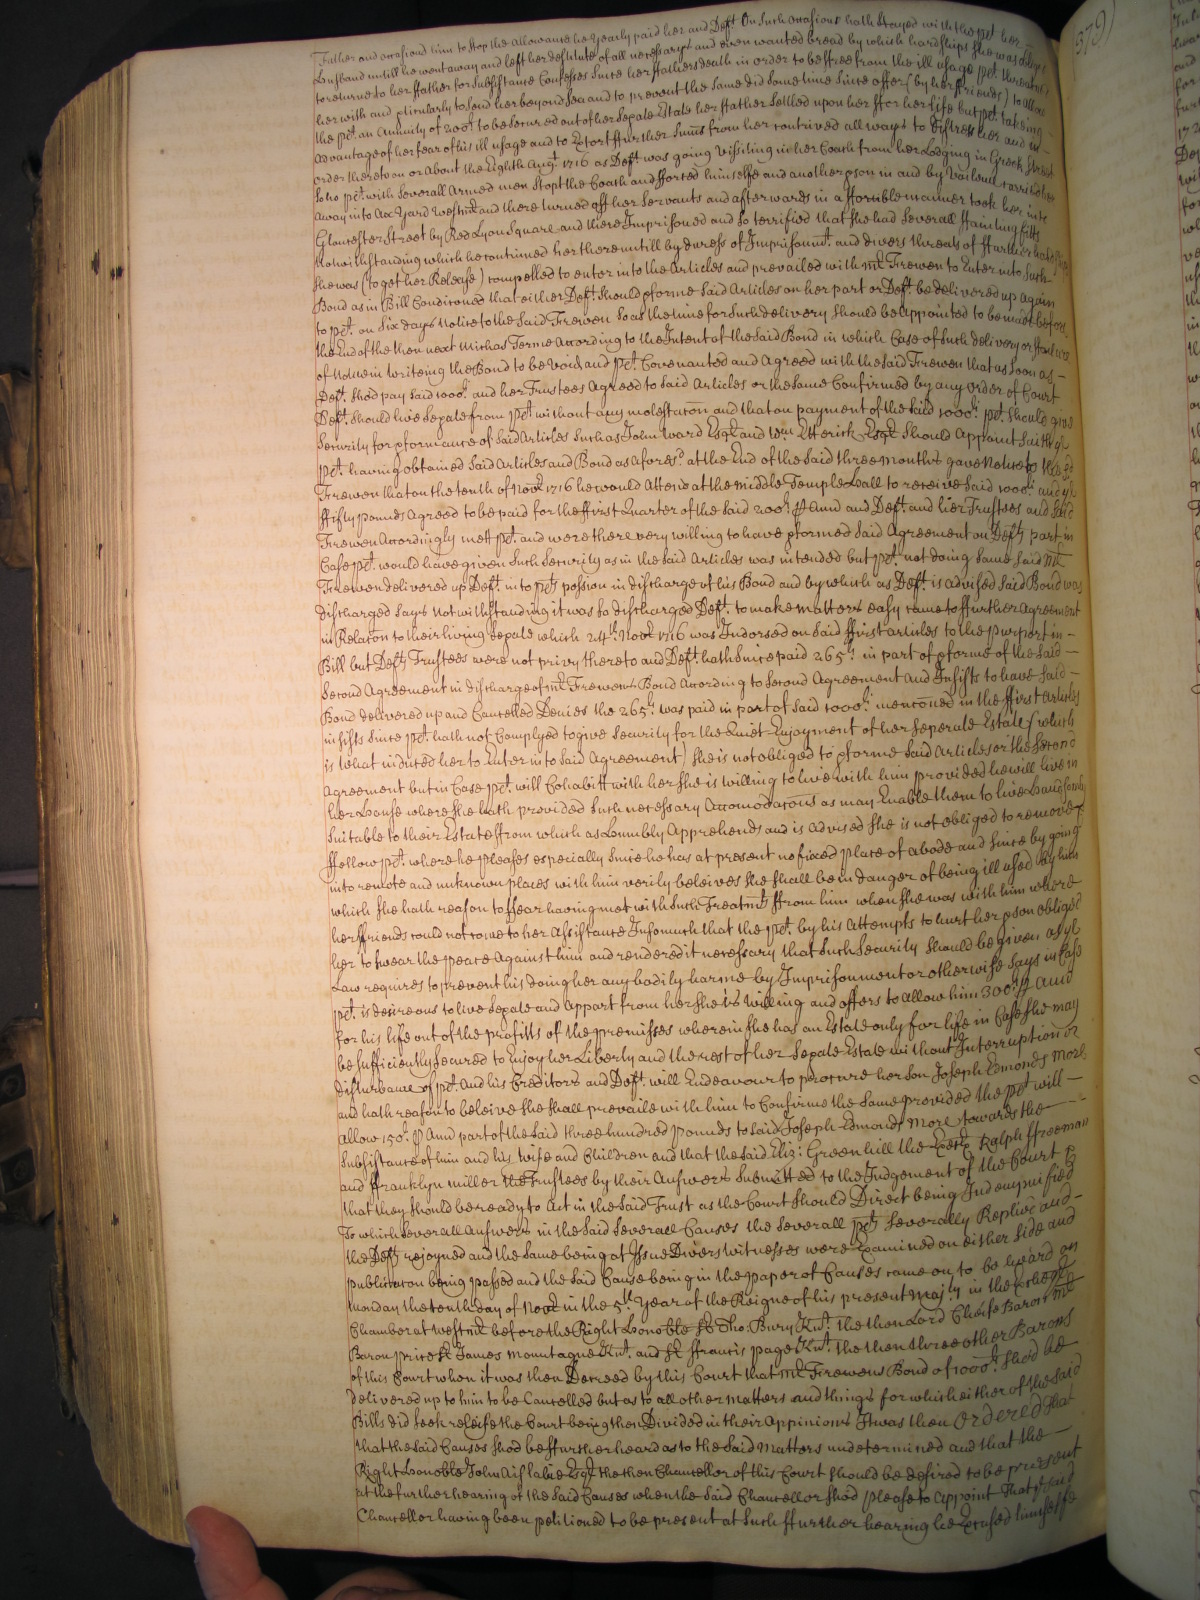 Father and occasiond him to stop the allowance he yearly paid her and Deft. On such occasions hath stayed with the pet. her
husband untill he went away and left her destitute of all necessarys and even wanted bread by which hardships she was obliged
to returne to her ffather for Subsistance Confesses Since her ffathers death in order to be ffree from the ill usage pet. threatned
her with and pticularly to send her beyond Sea and to prevent the same did sometime since offer (by her ffriends) to allow
the pet. an Annuity of 200l. to be secured out of her Sepate Estate her ffather Settled upon her ffor her life but pet. taking
advantage of her fear of his ill usage and to Extort ffurther Sums from her contrived all ways to distress her and in
order thereto on or about the Eighth Augt. 1716 as Deft. was going visiting in her Coach from her Lodging in Greek Street
Soho pet. with severall Armed men stopt the Coach and fforced himselfe and another pson in and by violence carried her
away into Axe Yard Westmr. and there turned off her Servants and afterwards in a fforcible manner took her into
Gloucester Street by Red Lyon Square and there Imprisoned and so terrified that she had severall ffainting ffitts
Notwithstanding which he continued her there untill by duress of Imprisonmt. and divers threats of ffurther hardships
she was (to get her Release) compelled to enter into the Articles and prevailed with Mr. Frewen to Enter into such
Bond as in Bill Conditioned that either Deft. should pforme said Articles on her part or Deft. be delivered up again
to pet. on Six days Notice to the said Frewen so as the time for such delivery should be appointed to be made before
the End of the then next Michas Terme According to the Intent of the said Bond in which Case of such delivery or ffailure
of Notice in writeing the Bond to be void and pet. Covenanted and Agreed with the said Frewen that as soon as
Deft. shod pay said 1000l. and her Trustees Agreed to said Articles or the same Confirmed by any order of Court
Deft. should live Sepate from pet. without any molestacon and that on payment of the said 1000l. pet. should give
Security for pformance of said Articles such as John Ward Esqr. and Wm. Etterick Esqr. should Appoint saith yt.
pet. having obtained said Articles and Bond as aforesd. at the End of the said three months gave Notice to the sd.
Frewen that on the tenth of Novr. 1716 he would Attend at the Middle Temple Hall to receive said 1000l. and ye
ffifty pounds Agreed to be paid for the ffirst Quarter of the said 200l. p Ann and Deft. and her Trustees and said
Frewen Accordingly mett pet. and were there very willing to have pformed said Agreement on Defts. part in
Case pet. would have given such Security as in the said Articles was intended but pet. not doing same said Mr.
Frewen delivered up Deft. into pets. possion in discharge of his Bond and by which as Deft. is advised said Bond was
discharged says Notwithstanding it was so discharged Deft. to make matters easy came to ffurther Agreement
in Relacon to their living Sepate which 24th. Novr. 1716 was Indorsed on said ffirst articles to the purport in
Bill but Defts. Trustees were not privy thereto and Deft. hath since paid 265l. in part of pforme of the said
second Agreement in discharge of Mr. Frewens Bond According to second Agreement and Insists to have said
Bond delivered up and Cancelled Denies the 265l. was paid in part of said 1000l. menconed in the ffirst articles
insists since pet. hath not Complyed to give Security for the Quiet Enjoyment of her Seperate Estate (which
is what induced her to Enter into said Agreement) she is not obliged to pforme said Articles or the second
Agreement but in Case pet. will Cohabitt with her she is willing to live with him provided he will live in
her house where she hath provided such necessary Accomodacons as may Enable them to live handsomly
Suitable to their Estate ffrom which as humbly Apprehends and is advised she is not obliged to remove or
ffollow pet. where he pleases especially since he has at present no fixed place of abode and since by going
into remote and unknown places with him verily beleives she shall be in danger of being ill used by him
which she hath reason to ffear having met with such Treatmt. ffrom him when she was with him where
her ffriends could not come to her Assistance Insomuch that the pet. by his Attempts to hurt her pson obliged
her to swear the peace Against him and rendered it necessary that such Security should be given as ye
Law requires to prevent his doing her any bodily harme by Imprisonment or otherwise Says in Case
pet. is desireous to live Sepate and Appart from her she is willing and offers to allow him 300l. p Ann
for his life out of the profitts of the premisses wherein she has an Estate only for life in Case she may
be sufficiently Secured to Enjoy her Liberty and the rest of her Sepate Estate without Interruption or
disturbance of pet. And his Creditors and Deft. will Endeavour to procure her son Joseph Edmonds More
and hath reason to beleive she shall prevaile with him to Confirme the same provided the pet. will
allow 150l. p Ann part of the said three hundred pounds to said Joseph Edmonds More towards the
Subsistance of him and his wife and Children and that the said Eliz: Greenhill the Execx. Ralph ffreeman
and ffranklyn Miller the Trustees by their Answers submitted to the Judgement of the Court &
that they should be ready to Act in the said Trust as the Court should Direct being Indempnified
To which severall Answers in the said severall Causes the severall pets. severally Replied and
the Defts. rejoyned and the same being at Issue Divers witnesses were Examined on either side and
publicacon being passed and the said Cause being in the paper of Causes came on to be heard on
Munday the tenth day of Novr. in the 5th. Year of the Reigne of his present Majty. in the Excheqr.
Chamber at Westmr. before the Right Honoble Sr. Tho: Bury Knt. the then Lord Cheife Baron Mr.
Baron Price Sr. James Mountague Knt. and Sr. ffrancis Page Knt. the then three other Barons
of this Court when it was then Decreed by this Court that Mr. Frewens Bond of 1000l. shod be
delivered up to him to be Cancelled but as to all other matters and things for which either of the said
Bills did seek releife the Court being then Divided in their Appinions It was then Ordered that
that the said Causes shod be ffurther heard as to the said matters undetermined and that the
Right Honoble John Aislabie Esqr. the then Chancellor of this Court should be desired to be present
at the further hearing of the said Causes when the said Chancellor shod please to appoint That ye said
Chancellor having been petitioned to be present at such ffurther hearing he Excused himselfe
579)